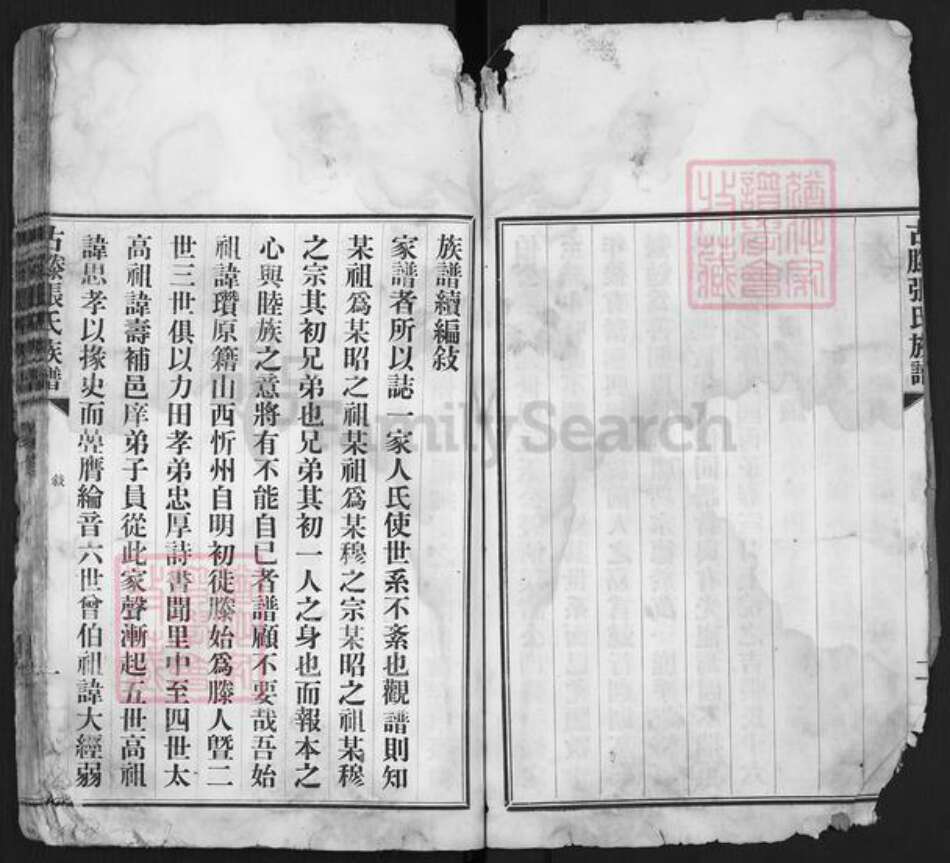 族譜續編敍
家譜者所以誌一家人氏使世系不紊也觀譜則知
某祖爲某昭之祖某祖爲某穆之宗某昭之祖某穆
之宗其初兄弟也兄弟其初一人之身也而報本之
心與睦族之意將有不能自已者譜顧不要哉吾始
祖諱瓚原籍山西忻州自明初徙滕始爲滕人暨二
世三世俱以力田孝弟忠厚詩書聞里中至四世太
高祖諱壽補邑庠弟子員從此家聲漸起五世高祖
諱思孝以掾史而膺綸音六世曾伯祖諱大經弱
古滕張氏族譜
敍
一
古滕張氏族譜
二
FamilySearch